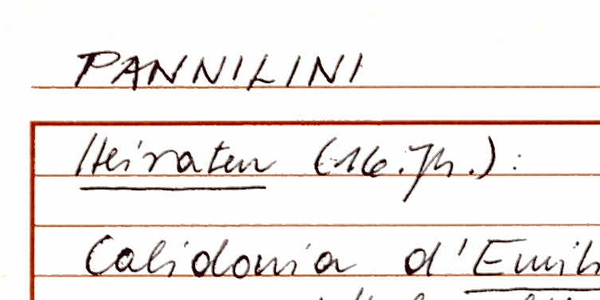 PANNILINI
Heiraten (16. Jh.):
Calidonia d'Emili